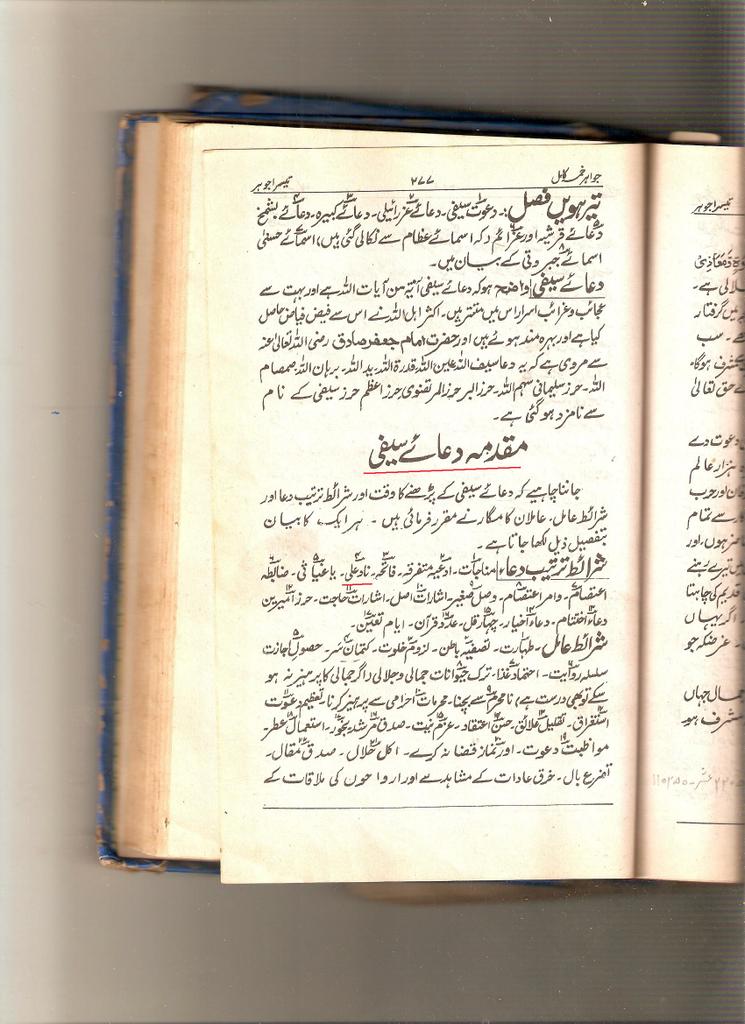 جواہر خمسہ کامل ۲۷۷ تیسرا جوہر
تیرہویں فصل:۔ دعوت سیفی۔ دعائے عزرائیلی۔ دعائے کبیرہ۔ دعائے بشمخ
دعائے قرشیہ اور عزائم (کہ اسمائے عظام سے نکالی گئی ہیں) اسمائے حسنیٰ
اسمائے جبروتی کے بیان میں۔
دعائے سیفی واضح ہو کہ دعائے سیفی آیتہ من آیات اللہ ہے اور بہت سے
عجائب و غرائب اسرار اس میں مستتر ہیں۔ اکثر اہل اللہ نے اس سے فیض فیاض حاصل
کیا ہے اور بہرہ مند ہوئے ہیں اور حضرت امام جعفر صادق رضی اللہ تعالیٰ عنہ
سے مروی ہے کہ یہ دعا سیف اللہ عین اللہ قدرۃ اللہ ید اللہ۔ برہان اللہ صمصام
اللہ۔ حرز سلیمانی سہم اللہ۔ حرز البر حرز المرتضوی حرز اعظم حرز سیفی کے نام
سے نامزد ہو گئی ہے۔
مقدمہ دعائے سیفی
جاننا چاہیے کہ دعائے سیفی کے پڑھنے کا وقت اور شرائط ترتیب دعا اور
شرائط عامل۔ عاملان کامگار نے مقرر فرمائی ہیں۔ ہر ایک کا بیان
بتفصیل ذیل لکھا جاتا ہے۔
شرائط ترتیب دعاء مناجات۔ ادعیہ متفرقہ۔ فاتحہ۔ ناد علی۔ یا غیاثی۔ ضابطہ
اعتصام۔ و امر اعتصام۔ وصل صغیر۔ اشارات اصل۔ اشارات حاجت۔ حرز امیرین
دعائے اختتام۔ دعائے اخیار۔ چہار قل۔ عدد قرآن۔ ایام تعین۔
شرائط عامل۔ طہارت۔ تصفیہ باطن۔ لزوم خلوت۔ کتمان سر۔ حصول اجازت
سلسلہ روایت۔ احتماء غذا۔ ترک حیوانات جمالی و جلالی (اگر جمالی کا پرہیز نہ ہو
سکے تو بھی درست ہے) نامحرم سے بچنا۔ محرمات احرامی سے پرہیز کرنا۔ تعظیم دعوت
استغراق۔ تقلیل علائق۔ حسن اعتقاد۔ عزم نیت۔ صدق مرشد۔ بخور۔ استعمال عطر۔
مواظبت دعوت۔ اور نماز قضا نہ کرے۔ اکل حلال۔ صدق مقال۔
تضرع بال۔ خرق عادات کے مشاہدے اور ارواحوں کی ملاقات کے
تیسرا جوہر
جلالی ہے۔
میں گرفتار
ہے۔ سب
حق تعالیٰ
دعوت دے
ہزار عالم
سے تمام
اگر یہاں